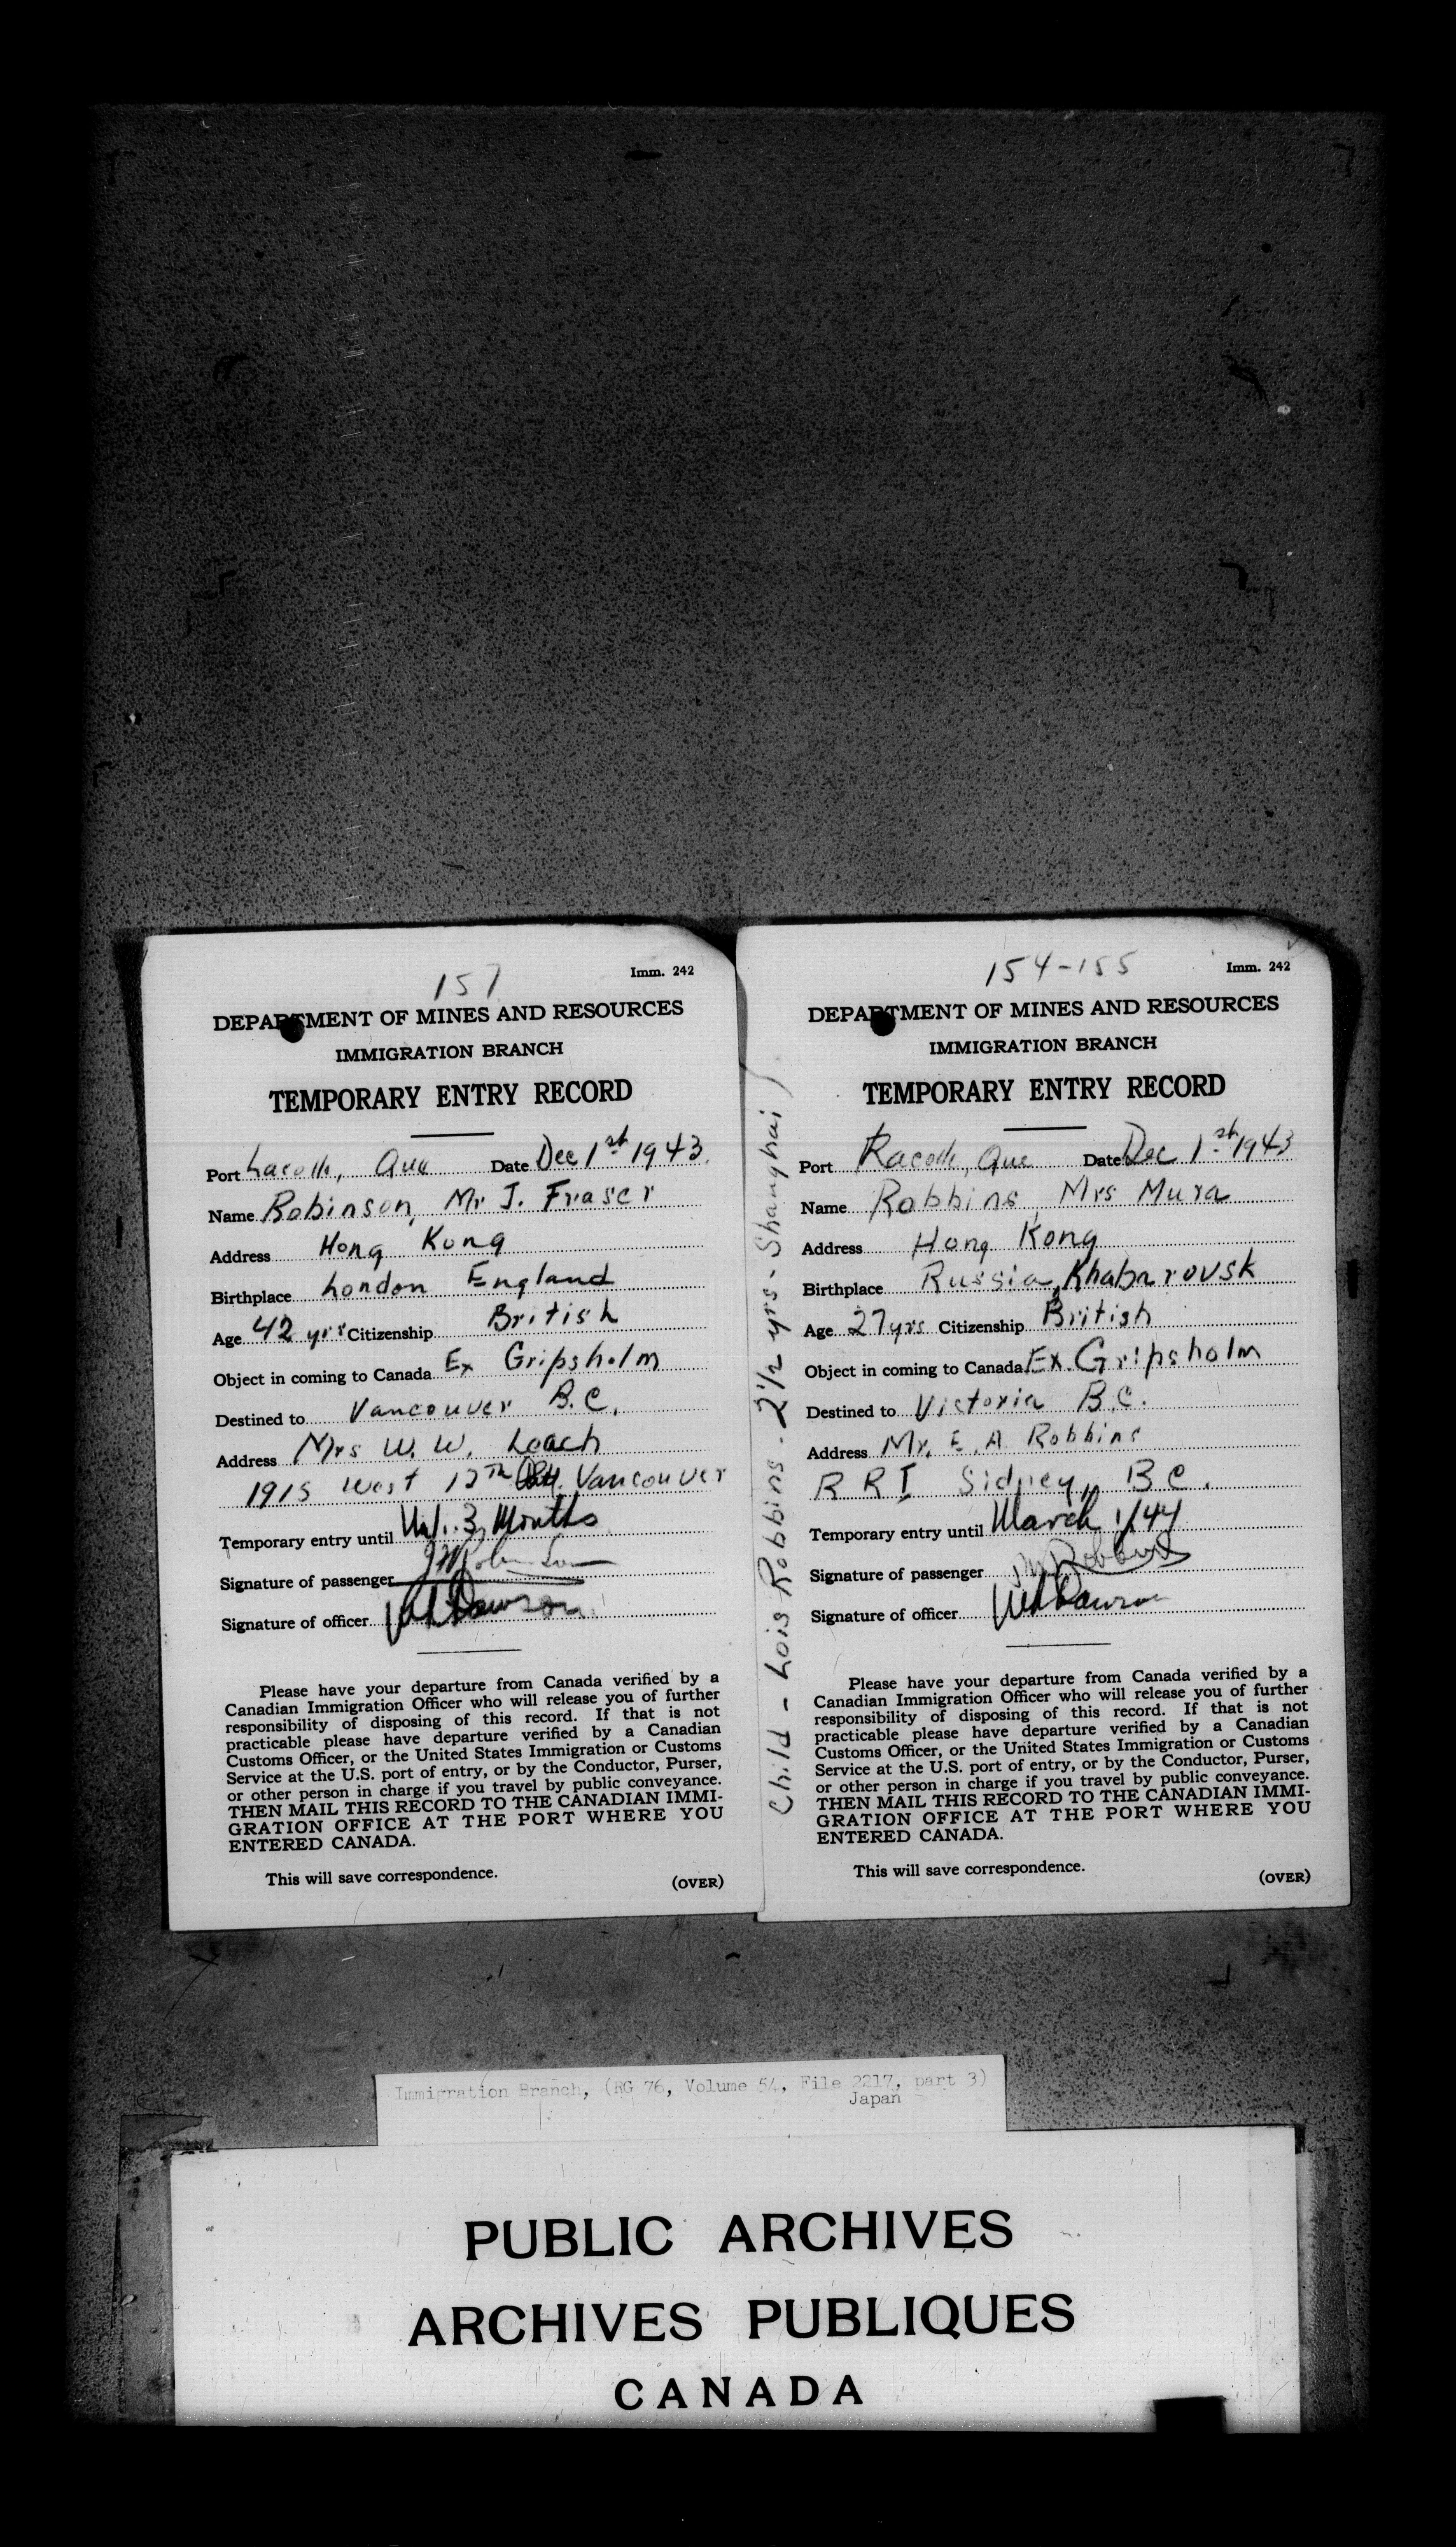 157
Imm. 242
DEPARTMENT OF MINES AND RESOURCES
IMMIGRATION BRANCH
TEMPORARY ENTRY RECORD
Port Lacolle, Que Date Dec 1st 1943.
Name Robinson, Mr J. Fraser
Address Hong Kong
Birthplace London England
Age 42 yrs Citizenship British
Object in coming to Canada Ex Gripsholm
Destined to Vancouver B.C.
Address Mrs W. W. Leach
1915 West 12th Vancouver
Temporary entry until 3 Months
Signature of passenger
Signature of officer Dawson
Please have your departure from Canada verified by a
Canadian Immigration Officer who will release you of further
responsibility of disposing of this record. If that is not
practicable please have departure verified by a Canadian
Customs Officer, or the United States Immigration or Customs
Service at the U.S. port of entry, or by the Conductor, Purser,
or other person in charge if you travel by public conveyance.
THEN MAIL THIS RECORD TO THE CANADIAN IMMI-
GRATION OFFICE AT THE PORT WHERE YOU
ENTERED CANADA.
This will save correspondence.
(OVER)
154-155
Imm. 242
DEPARTMENT OF MINES AND RESOURCES
IMMIGRATION BRANCH
TEMPORARY ENTRY RECORD
Port Lacolle, Que Date Dec 1st 1943
Name Robbins Mrs Mura
Address Hong Kong
Birthplace Russia, Khabarovsk
Age 27yrs Citizenship British
Object in coming to Canada Ex. Gripsholm
Destined to Victoria B.C.
Address Mr. E. A Robbins
R R I Sidney, B C.
Temporary entry until March 1/44
Signature of passenger M Robbins
Signature of officer Dawson
Please have your departure from Canada verified by a
Canadian Immigration Officer who will release you of further
responsibility of disposing of this record. If that is not
practicable please have departure verified by a Canadian
Customs Officer, or the United States Immigration or Customs
Service at the U.S. port of entry, or by the Conductor, Purser,
or other person in charge if you travel by public conveyance.
THEN MAIL THIS RECORD TO THE CANADIAN IMMI-
GRATION OFFICE AT THE PORT WHERE YOU
ENTERED CANADA.
This will save correspondence.
(OVER)
Child - Lois Robbins - 2 1/2 yrs - Shanghai)
Immigration Branch, (RG 76, Volume 54, File 2217, part 3)
Japan
PUBLIC ARCHIVES
ARCHIVES PUBLIQUES
CANADA